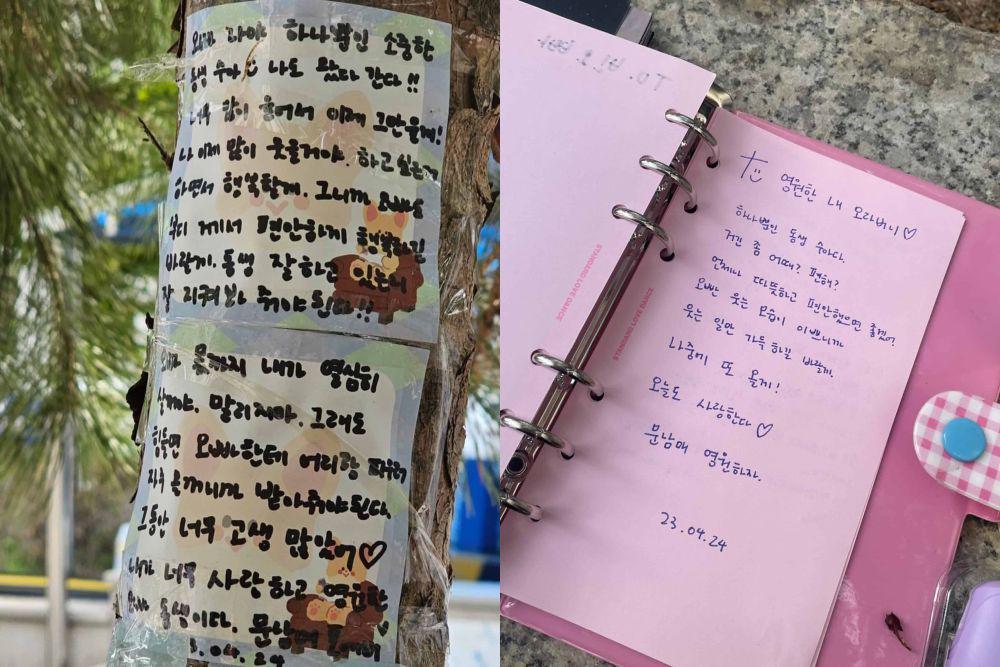 오빠 나야 하나뿐인 소중한
동생 수아 나도 왔다 간다!!
너무 많이 울어서 이제 그만울게!
나 이제 많이 웃을거야. 하고싶은거
하면서 행복할게. 그니까 오빠도
거기 에서 편안하게 행복하길
바랄게. 동생 잘하고 있는지
잘 지켜봐 줘야된다!!
오빠 몫까지 내가 열심히
살게야. 말리지마. 그래도
힘들면 오빠한테 어리광 피우러
자주 올꺼니까 받아줘야된다.
그동안 너무 고생 많았어♡
내가 너무 사랑하고 영원한
동생이다. 문남매
.04.24
TO.
STANDARD LOVE DANCE
STANDARD LOVE DANCE
영원한 내 오라버니♡
하나뿐인 동생 수아다.
거긴 좀 어때? 편해?
언제나 따뜻하고 편안했으면 좋겠어?
오빠 웃는 모습이 이쁘니까
웃는 일만 가득하길 바랄게.
나중에 또 올게!
오늘도 사랑한다♡
문남매 영원하자.
23.04.24